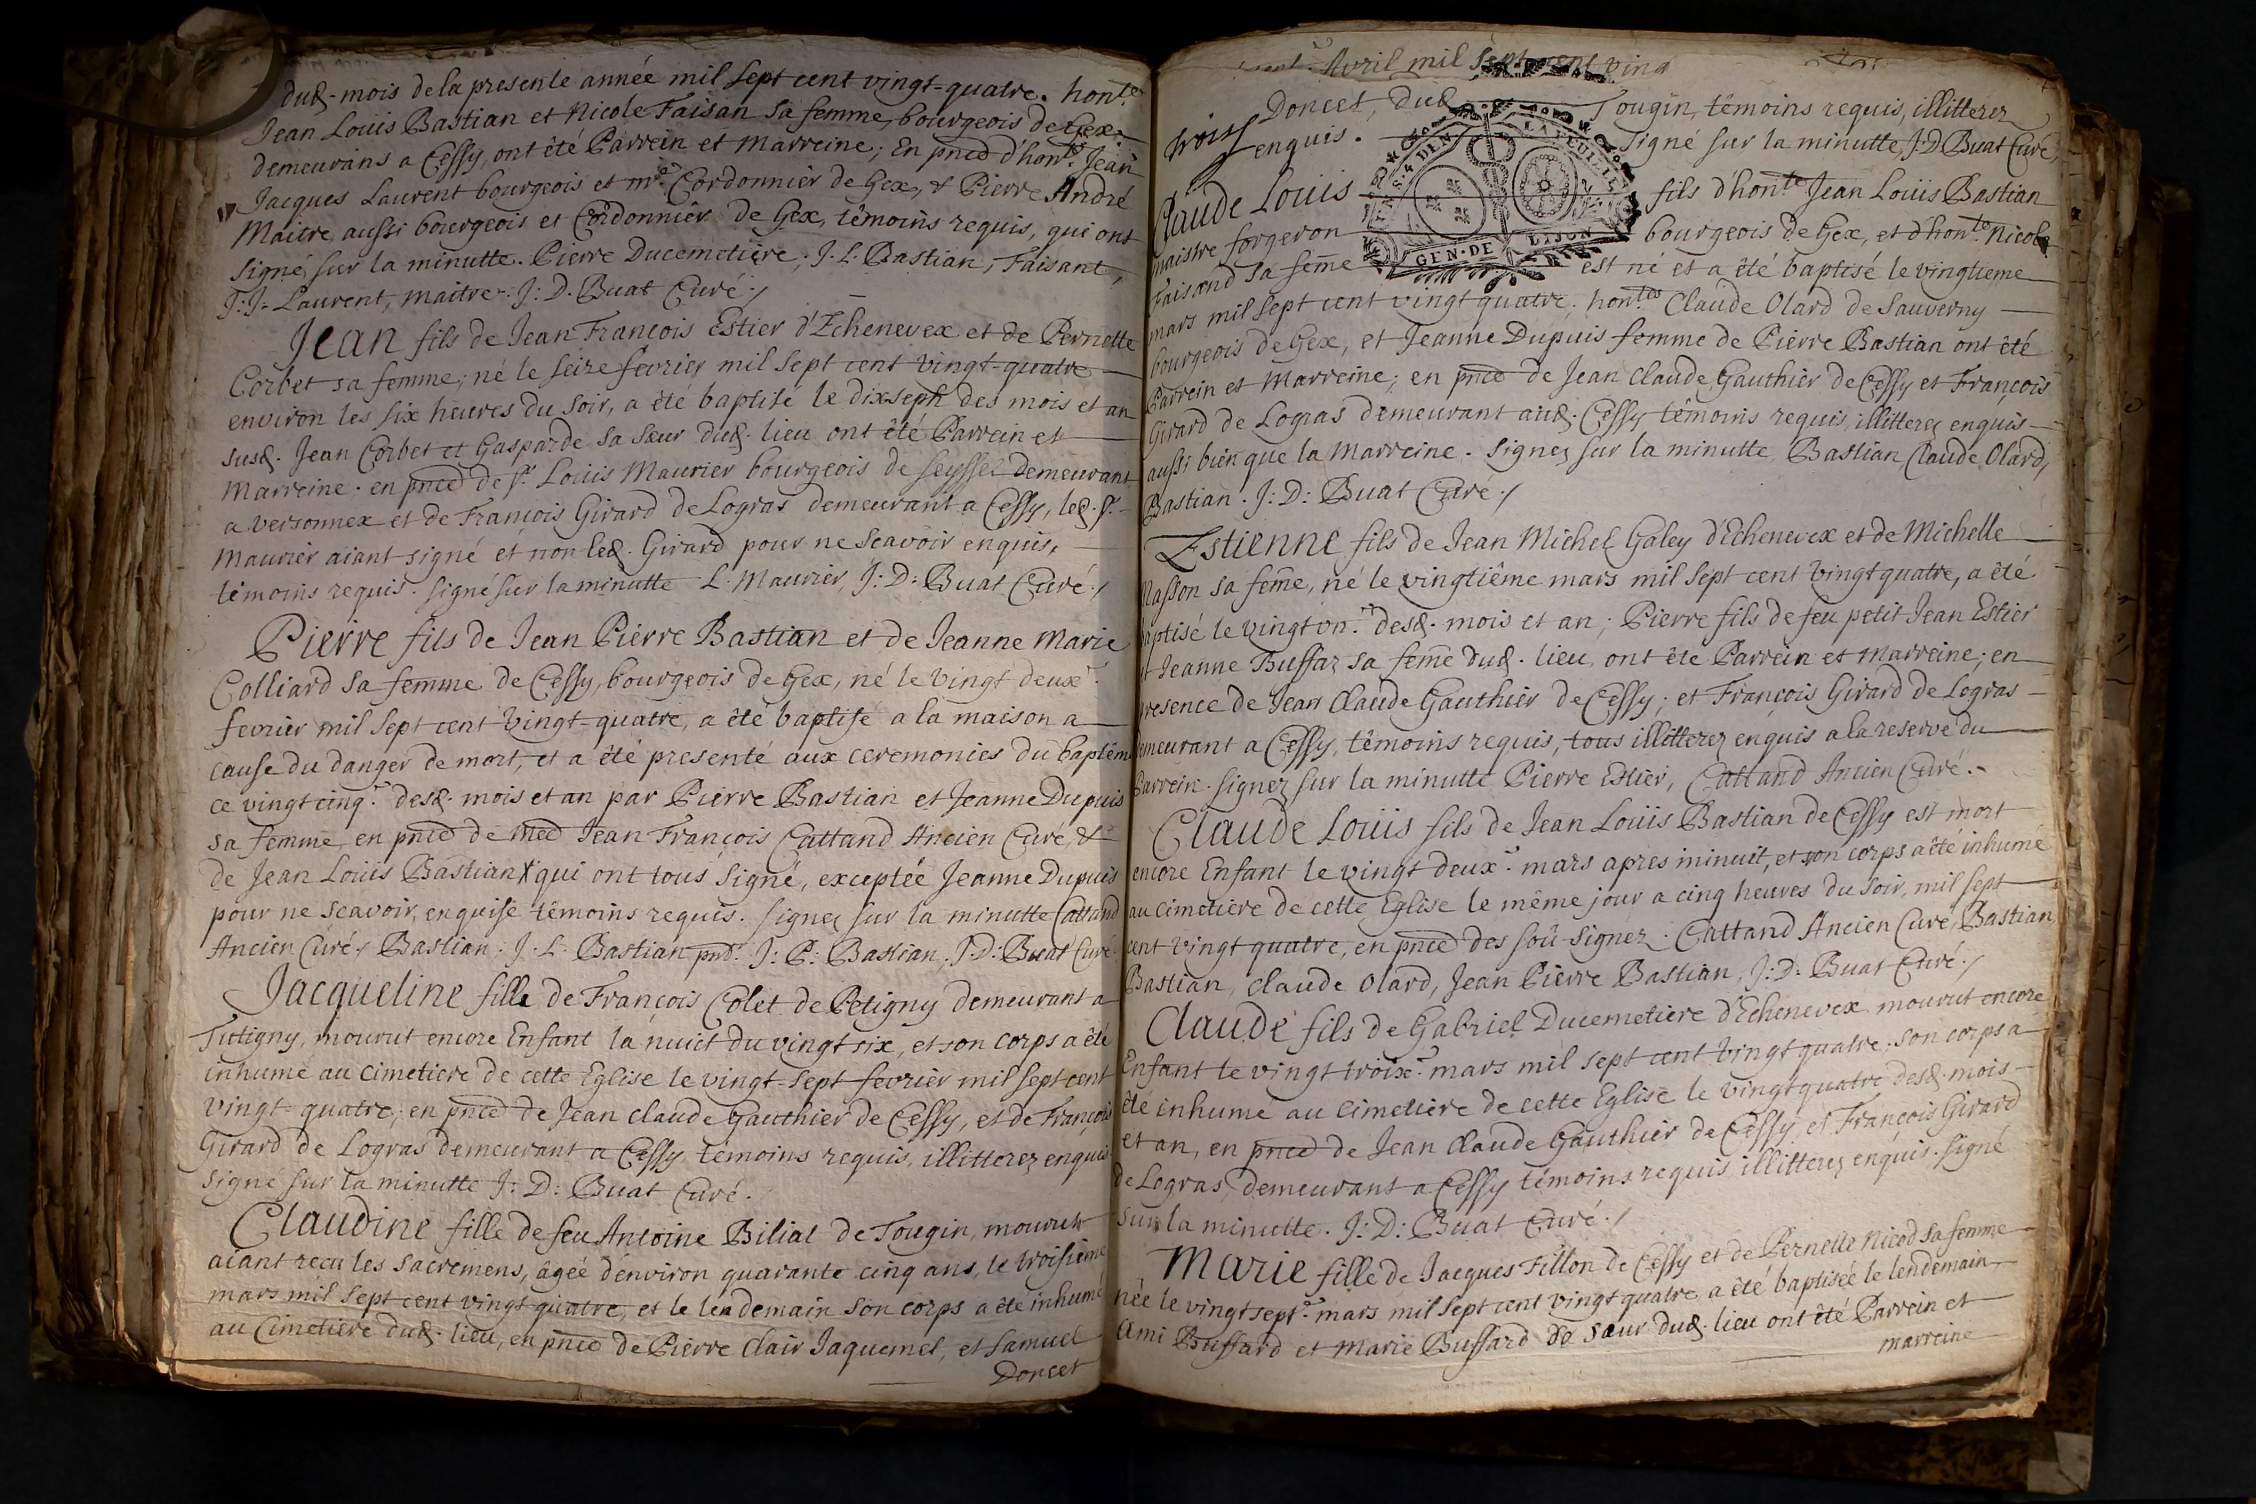 dud. mois de la presente année mil sept cent vingt=quatre. hont.e
Jean Loüis Bastian et Nicole Faisan sa femme, bourgeois de Gex,
demeurans a Cessy, ont été Parrein et Marreine; En pnce d'hont. Jean
Jacques Laurent bourgeois et m.e Cordonnier de Gex, & Pierre André
Maitre aussi bourgeois et Cordonnier de Gex, témoins requis, qui ont
signé sur la minutte. Pierre Ducemetiere; J. L. Bastian, Faisant,
J: J. Laurent, maitre. J: D. Buat Curé./
Jean fils de Jean François Estier d'Echenevex et de Pernette
Corbet sa femme; né le seize fevrier mil sept cent vingt=quatre
environ les six heures du soir, a été baptisé le dixseph des mois et an
susd. Jean Corbet et Gasparde sa sœur dud. lieu ont été Parrein et
Marreine. en pnce de s.r Loüis Maurier bourgeois de seyssel demeurant
a versonnex et de François Girard de Logras demeurant a Cessy, led. s.r
Maurier aiant signé et non led. Girard pour ne scavoir enquis,
témoins requis. signé sur la minutte L. Maurier, J: D: Buat Curé./
Pierre fils de Jean Pierre Bastian et de Jeanne Marie
Colliard sa femme de Cessy, bourgeois de Gex, né le vingt deux.e
fevrier mil sept cent vingt=quatre, a été baptisé a la maison a
cause du danger de mort, et a été presenté aux ceremonies du baptême
ce vingt cinq.e desd. mois et an par Pierre Bastian et Jeanne Dupuis
sa femme, en pnce de Mre Jean François Cattand Ancien Curé, &
de Jean Loüis Bastian qui ont tous signé, exceptée Jeanne Dupuis
pour ne scavoir, enquise témoins requis. signez sur la minutte Cattand
Ancien Curé, Bastian. J. L. Bastian pnt. J: P: Bastian. J. D: Buat Curé
Jacqueline fille de François Colet de Petigny demeurant a
Tutigny, mourut encore Enfant la nuit du vingt six, et son corps a été
inhumé au cimetiere de cette Eglise le vingt=sept fevrier mil sept cent
vingt=quatre; en pnce de Jean Claude Gauthier de Cessy, et de François
Girard de Logras demeurant a Cessy témoins requis, illitterez enquis.
signé sur la minutte J: D: Buat Curé.
Claudine fille de feu Antoine Bilial de Tougin, mourut
aiant reçu les sacremens, âgée d'environ quarante cinq ans, le troisième
mars mil sept cent vingt quatre, et le lendemain son corps a été inhumé
au Cimetiere dud. lieu, en pnce de Pierre Clair Jaquemet, et Samuel
Doncet
Avril mil sept cent ving
Doncet, dud. Tougin, témoins requis, illitterez
trois enquis. signé sur la minutte, J: D Buat Curé,
Claude Loüis fils d'hont.e Jean Loüis Bastian
maistre forgeron bourgeois de Gex, et d'hon.te Nicole
Faisand sa feme est né et a été baptisé le vingtieme
mars mil sept cent vingt quatre. hon.tes Claude Olard de Sauverny
bourgeois de Gex, et Jeanne Dupuis femme de Pierre Bastian ont été
Parrein et Marreine; en pnce de Jean Claude Gauthier de Cessy et François
Girard de Logras demeurant aud. Cessy témoins requis, illitterez enquis
aussi bien que la Marreine. signez sur la minutte Bastian, Claude Olard,
Bastian. J: D: Buat Curé./
Estienne fils de Jean Michel Galey d'Echenevex et de Michelle
Masson sa feme, né le vingtiême mars mil sept cent vingt quatre, a été
baptisé le vingt un.e desd. mois et an; Pierre fils de feu petit Jean Estier
et Jeanne Buffaz sa feme dud. lieu ont été Parrein et Marreine; en
presence de Jean Claude Gauthier de Cessy; et François Girard de Logras
demeurant a Cessy, témoins requis, tous illitterez enquis a la reserve du
Parrein. signez sur la minutte Pierre Estier, Cattand Ancien Curé.
Claude Loüis fils de Jean Loüis Bastian de Cessy est mort
encore Enfant le vingt deux.e mars apres minuit, et son corps a été inhumé
au Cimetiere de cette Eglise le même jour a cinq heures du soir, mil sept
cent vingt quatre, en pnce des soû-signez. Cattand Ancien Curé, Bastian,
Bastian, Claude Olard, Jean Pierre Bastian, J: D: Buat Curé./
Claude fils de Gabriel Ducemetiere d'Echenevex mourut encore
Enfant le vingt troix.e mars mil sept cent vingt quatre. son corps a
été inhumé au Cimetiere de cette Eglise le vingt quatre desd. mois
et an, en pnce de Jean Claude Gauthier de Cessy et François Girard
de Logras, demeurans a Cessy témoins requis illitterez enquis. signé
sur la minutte. J: D: Buat Curé./
Marie fille de Jacques Fillon de Cessy et de Pernette Nicod sa femme
née le vingt sept.e mars mil sept cent vingt quatre, a été baptisée le lendemain,
Ami Buffard et Marie Buffard sa sœur dud. lieu ont été Parrein et
marreine
GEN. DE DIJON